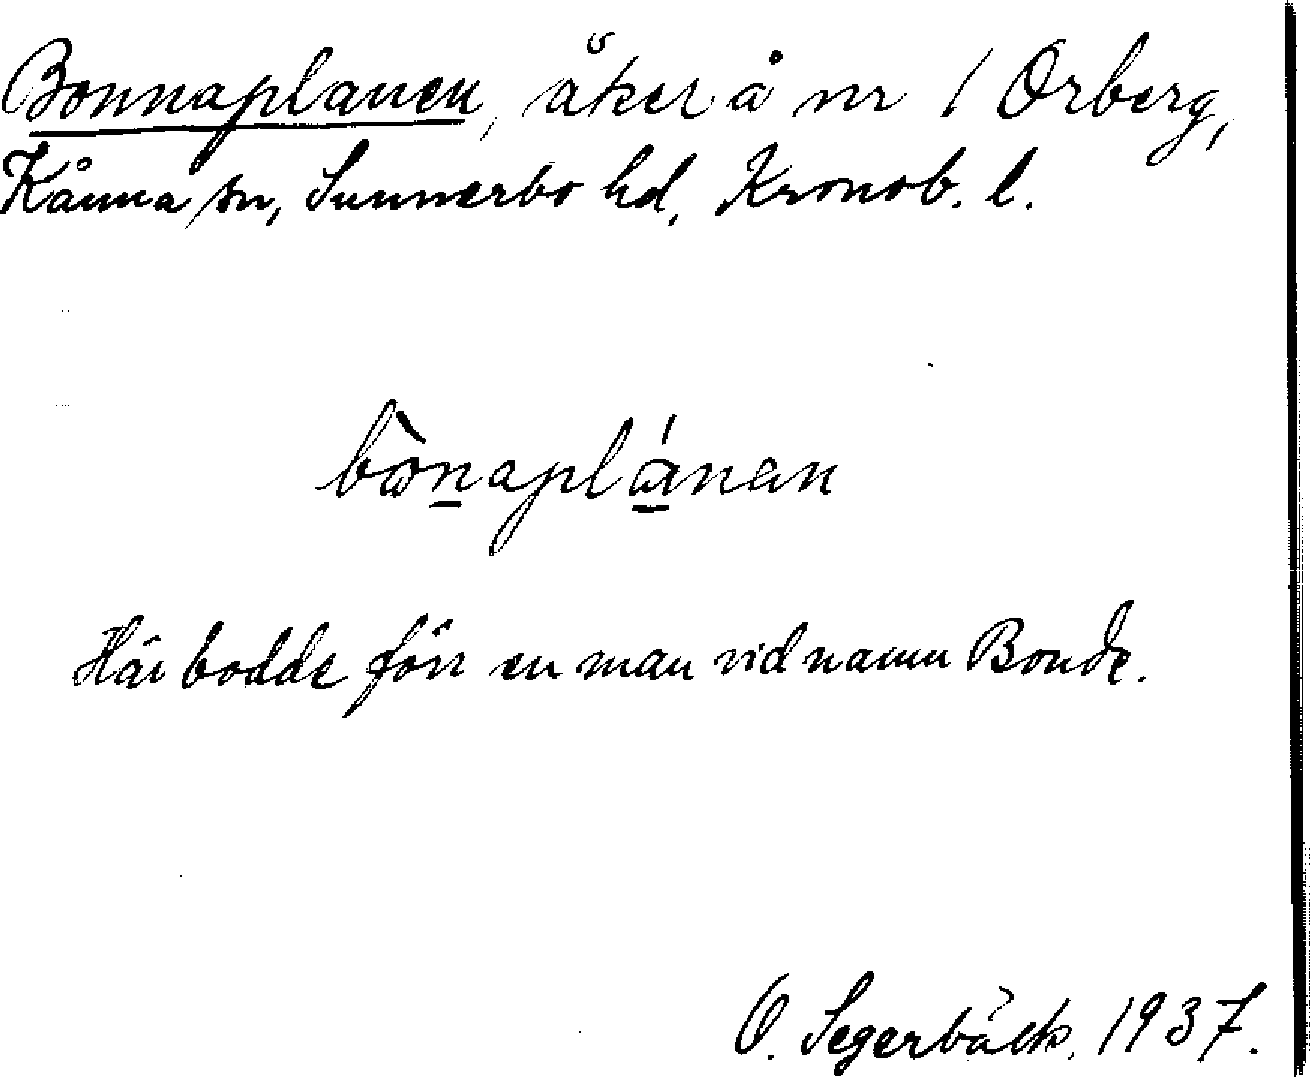 Bonnaplanen, åker å nr 1 Orberg,
Kånna sn, Sunnerbo hd, Kronob. l.
bònaplánan
Här bodde förr en man vid namn Bonde.
O. Segerbäck, 1937.